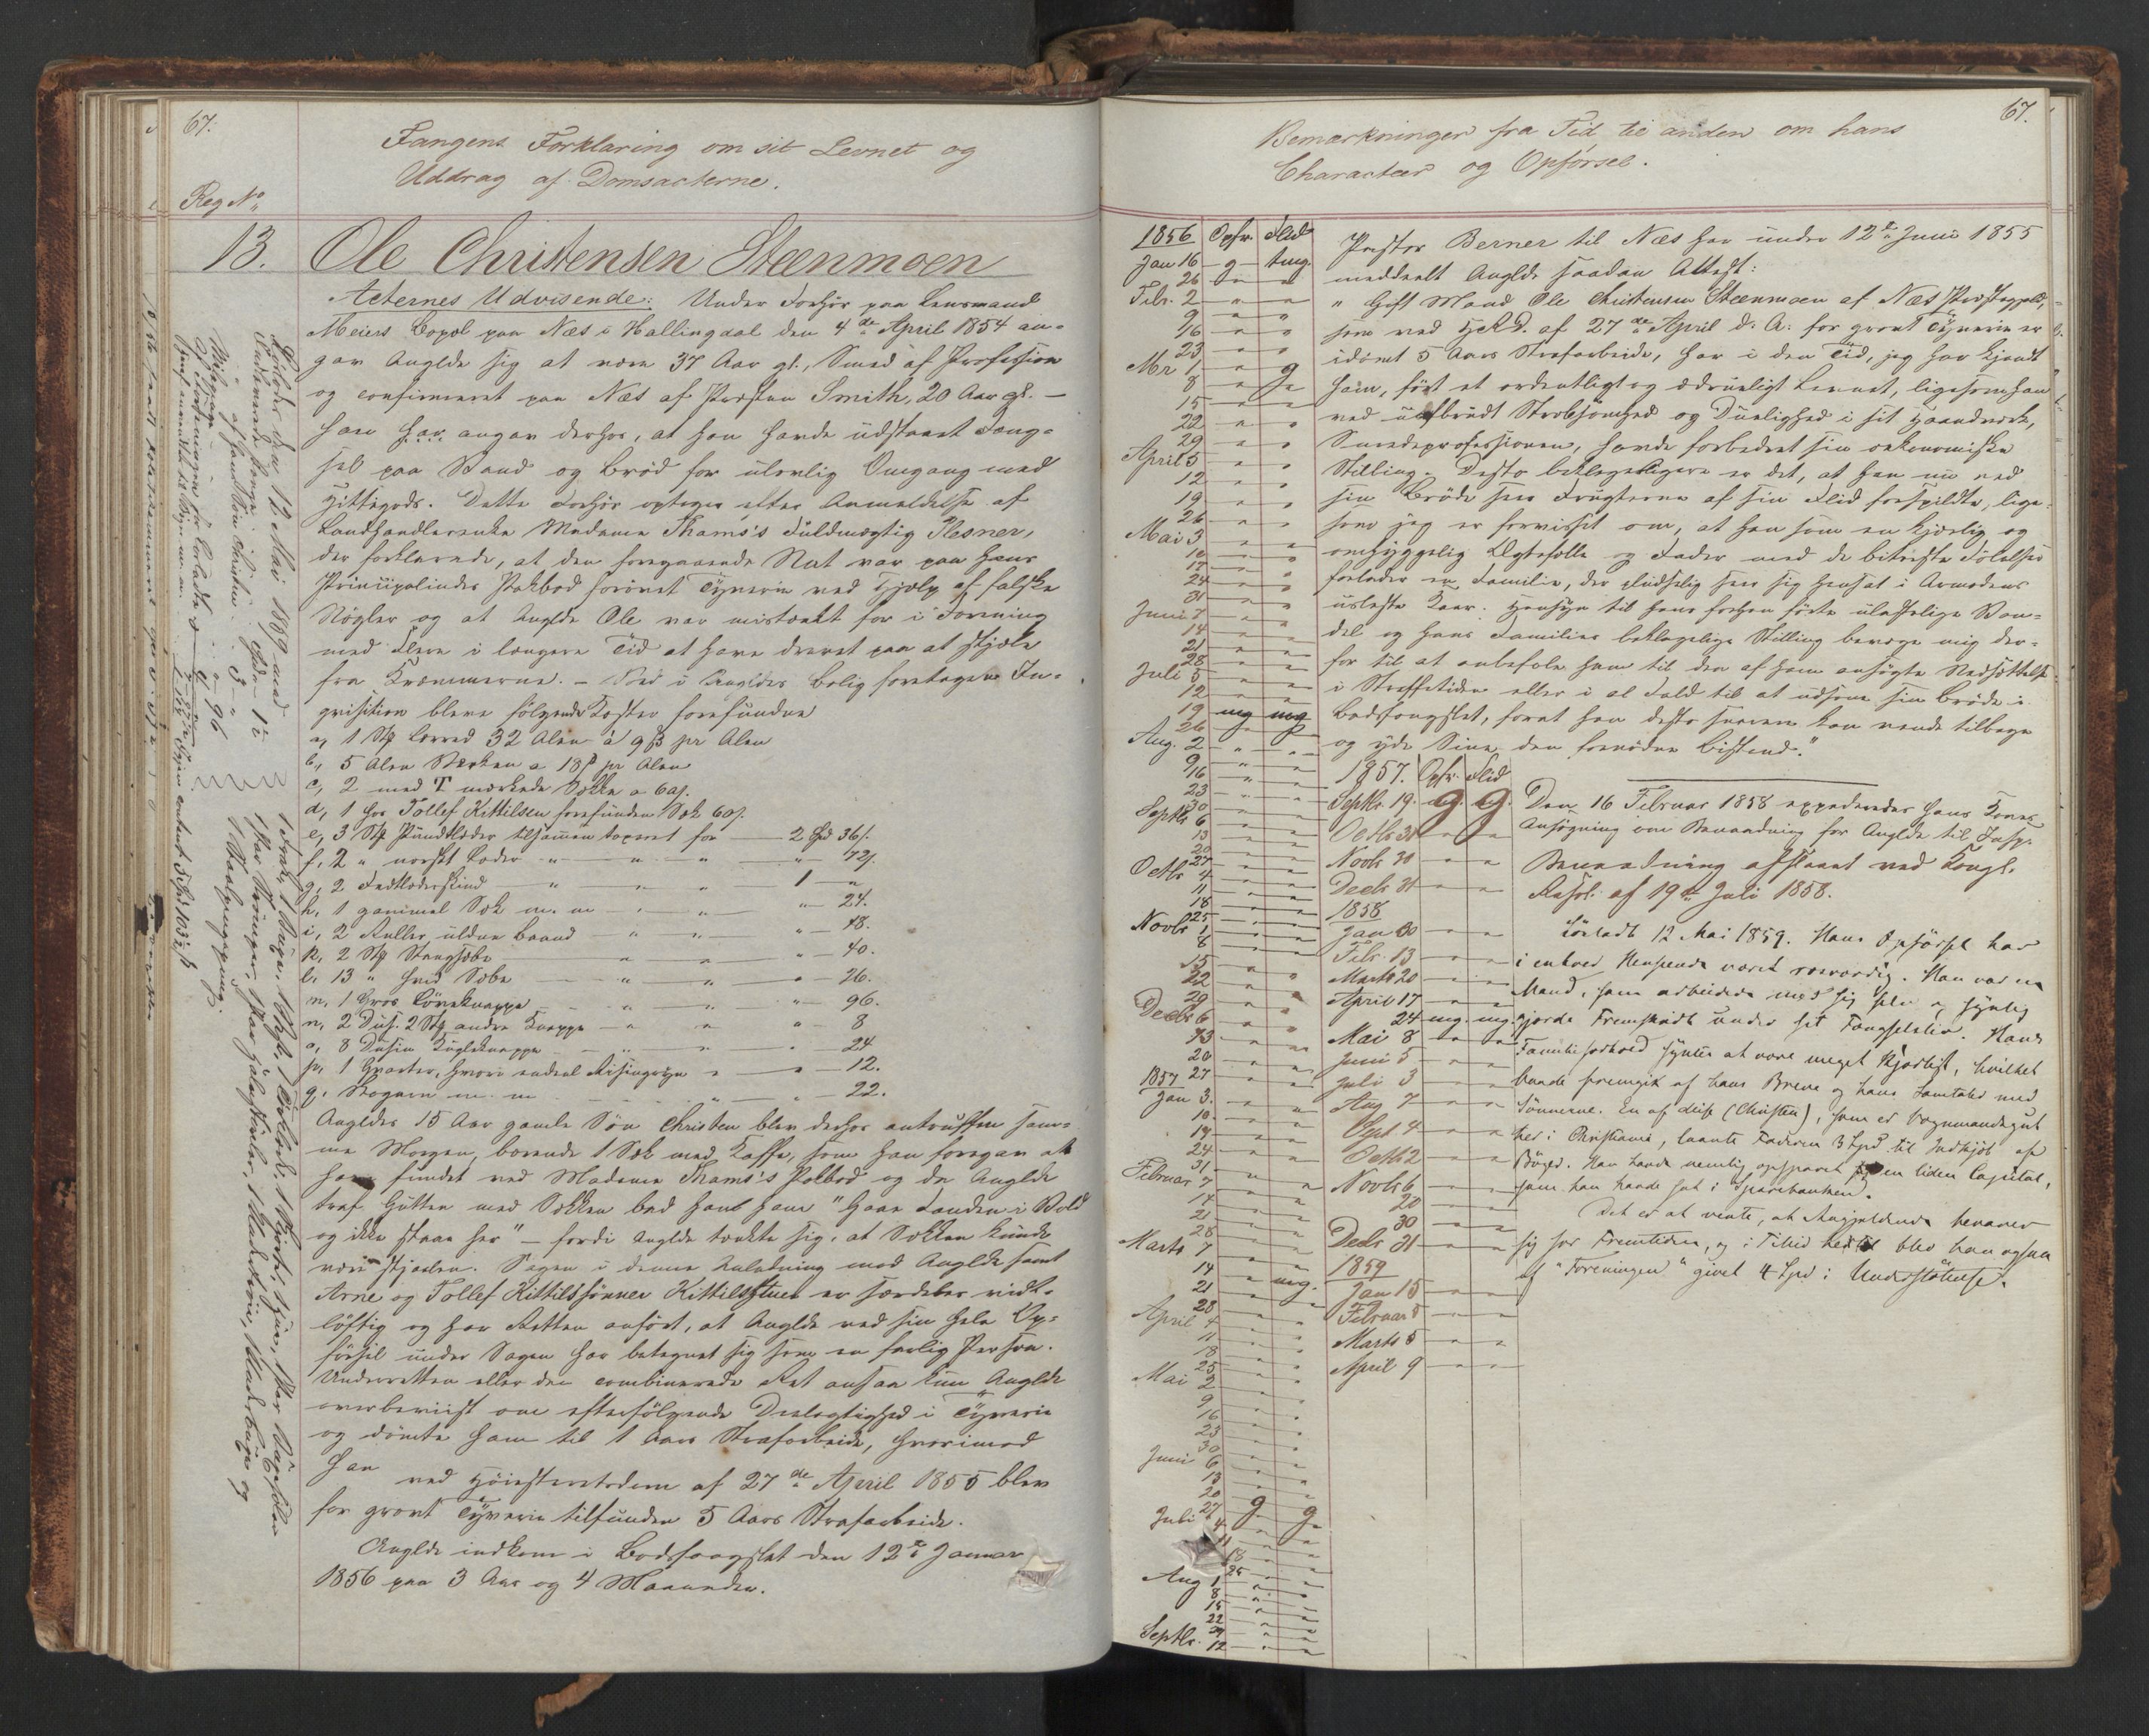 67.
Fangens Forklaring om sit Levnet og
Uddrag af Domsacterne.
Reg No
13. Ole Christensen Steenmoen
Acternes Udvisende: Under Forhør paa Lensmand
Meiers Bopæl paa Næs i Hallingdal den 4de April 1854 an-
gav Anglde sig at være 37 Aar gl., Smed af Profession
og confirmeret paa Næs af Presten Smith, 20 Aar gl. —
Han har angav derhos, at han havde udstaaet Fæng-
sel paa Vand og Brød for ulovlig Omgang med
Hittegods. Dette Forhør optoges efter Anmeldelse af
Landhandlerenke Madame Thams's Fuldmægtig Plesner,
der forklarede, at den foregaaende Nat var paa hans
Principalindes Pakbod forøvet Tyverie ved Hjælp af falske
Nøgler og at Anglde Ole var mistænkt for i Forening
med Flere i længere Tid at have drevet paa at stjæle
fra Kræmmerne. — Ved i Angldes Bolig foretagen In-
qvisition bleve følgende Koster forefundne
a, 1 Stk Lærred 32 Alen á 9 ß pr Alen
b, 5 Alen Værken a 18 ß pr Alen
c, 2 med T mærkede Sække a 60 ß.
d, 1 hos Tollef Kittilsen forefunden Sæk 60 ß.
e, 3 Stk Pundlæder tilsammen taxeret for — 2 Spd 36 ß.
f, 2 " norskt Læder — " — " — " — 72 ß.
g, 2 Fedtlæderskind — " — " — " — 1 — "
h, 1 gammel Sæk m. m — " — " — " — 24.
i, 2 Ruller uldne Baand — " — " — " — 48.
k, 2 Stk Stangsæbe — " — " — " — 40.
l, 13 " hvid Sæbe — " — " — " — 26.
m, 1 Gros Løveknappe — " — " — " — 96.
n, 2 Dus. 2 Stk andre Knappe — " — " — " 8
o, 8 Dusin Kugleknappe — " — " — " — 24
p, 1 Qvarter, hvori endeel Risingryn — " — " — 12.
q, m. m — " — " — 22.
Angldes 15 Aar gamle Søn Christen blev derhos antruffen sam-
me Morgen, bærende 1 Sæk med Kaffe, som han foregav at
have fundet ved Madame Thams's Pakbod og da Anglde
traf Gutten med Sækken bad han ham "Gaae Fanden i Vold
og ikke staae her" — fordi Anglde tænkte sig, at Sækken kunde
være stjaalen. Sagen i denne Anledning mod Anglde samt
Arne og Tollef Kittilssønner Kittilsstuen er særdeles vidt-
løftig og har Retten anført, at Anglde ved sin hele Op-
førsel under Sagen har betegnet sig som en farlig Person.
Underretten eller den combinerede Ret ansaa kun Anglde
overbeviist om efterfølgende Deelagtighed i Tyverie
og dømte ham til 1 Aars Strafarbeide, hvorimod
han ved Høiesteretsdom af 27de April 1855 blev
for grovt Tyverie tilfunden 5 Aars Strafarbeide.
Anglde indkom i Bodsfængslet den 12te Januar
1856 paa 3 Aar og 4 Maaneder.
Løsladt den 12 Mai 1859 med
67.
Bemærkninger fra Tid til anden om hans
Character og Opførsel.
1856 Opfr. Flid
Jan 16 g tmg.
26
Febr. 2
9
16
23
Mr 1 g
8
15
22
29
April 5
12
19
26
Mai 3
10
17
24
31
Juni 7
14
21
28
Juli 5
12
19 mg mg
26
Aug. 2
9
16
23
30
Septbr 6
13
20
27
Octbr 4
11
18
25
Novbr 1
8
15
22
29
Decbr 6
13
20
27
1857
Jan 3.
10
17
24
31
Februar 7
14
21
28
Marts 7
14 mg.
21
28
April 4
11
18
25
Mai 2
9
16
23
30
Juni 6
13
20
27 g g
Juli 4
11
18
25
Aug 1
8
15
22
29
Septbr. 12
Pastor Berner til Næs har under 12te Juni 1855
meddeelt Anglde saadan Attest:
" Gift Mand Ole Christensen Steenmoen af Næs Præstegjeld,
som ved H.R.D. af 27de April d: A: for grovt Tyverie er
idømt 5 Aars Strafarbeide, har i den Tid, jeg har kjendt
ham, ført et ordentligt og ædrueligt Levnet, ligesom han
ved uafbrudt Stræbsomhed og Duelighed i sit Haandværk,
Smedeprofessionen, havde forbedret sin oekonomiske
Stilling. Desto beklageligere er det, at han nu ved
sin Brøde seer Frugterne af sin Flid forspildte, lige-
som jeg er forvisset om, at han som en kjærlig og
omhyggelig Ægtefælle og Fader med de bitreste Følelser
forlader en Familie, der pludselig seer sig hensat i Armodens
usleste Kaar. Hensyn til hans forhen førte ulastelige Van-
del og hans Families beklagelige Stilling bevæge mig der-
for til at anbefale ham til den af ham ansøgte Nedsættelse
i Straffetiden eller i al Fald til at udsone sin Brøde i
Bodsfængslet, forat han desto snarere kan vende tilbage
og yde Sine den fornødne Bistand."
1857. Opfr. Flid
Septbr 19. g. g.
Octbr 31
Novbr 30
Decbr 31
1858
Jan 30
Febr. 13
Marts 20
April 17
24 mg. mg.
Mai 8
Juni 5
Juli 3
Aug 7
Sept 4
Octb 2
Novbr 6
20
30
Decbr 31
1859
Jan 15
Februar 5
Marts 5
April 9
Den 16 Februar 1858 expederedes hans Kones
Ansøgning om Benaadning for Anglde til Insp.
Benaadning afslaaet ved Kongl.
Resol. af 19de Juli 1858.
Løsladt 12 Mai 1859. Hans Opførsel har
i enhver Henseende været rosværdig. Han var en
Mand, som arbeidede med sig selv og synlig
gjorde Fremskridt under sit Fængselsliv. Hans
Familieforhold syntes at være meget kjærligt, hvilket
baade fremgik af hans Breve og hans Samtaler med
Sønnerne. En af disse (Christen), som er Vognmandsgut
her i Christiania, laante Faderen 3 Spd til Indkjøb af
Bøger. Han havde nemlig opsparet sig en liden Capital,
som han havde sat i Sparebanken.
Det er at vente, at Angjældende bevarer
sig for Fremtiden, og i Tillid hertil blev han ogsaa
af "Foreningen" givet 4 Spd i Understøttelse.